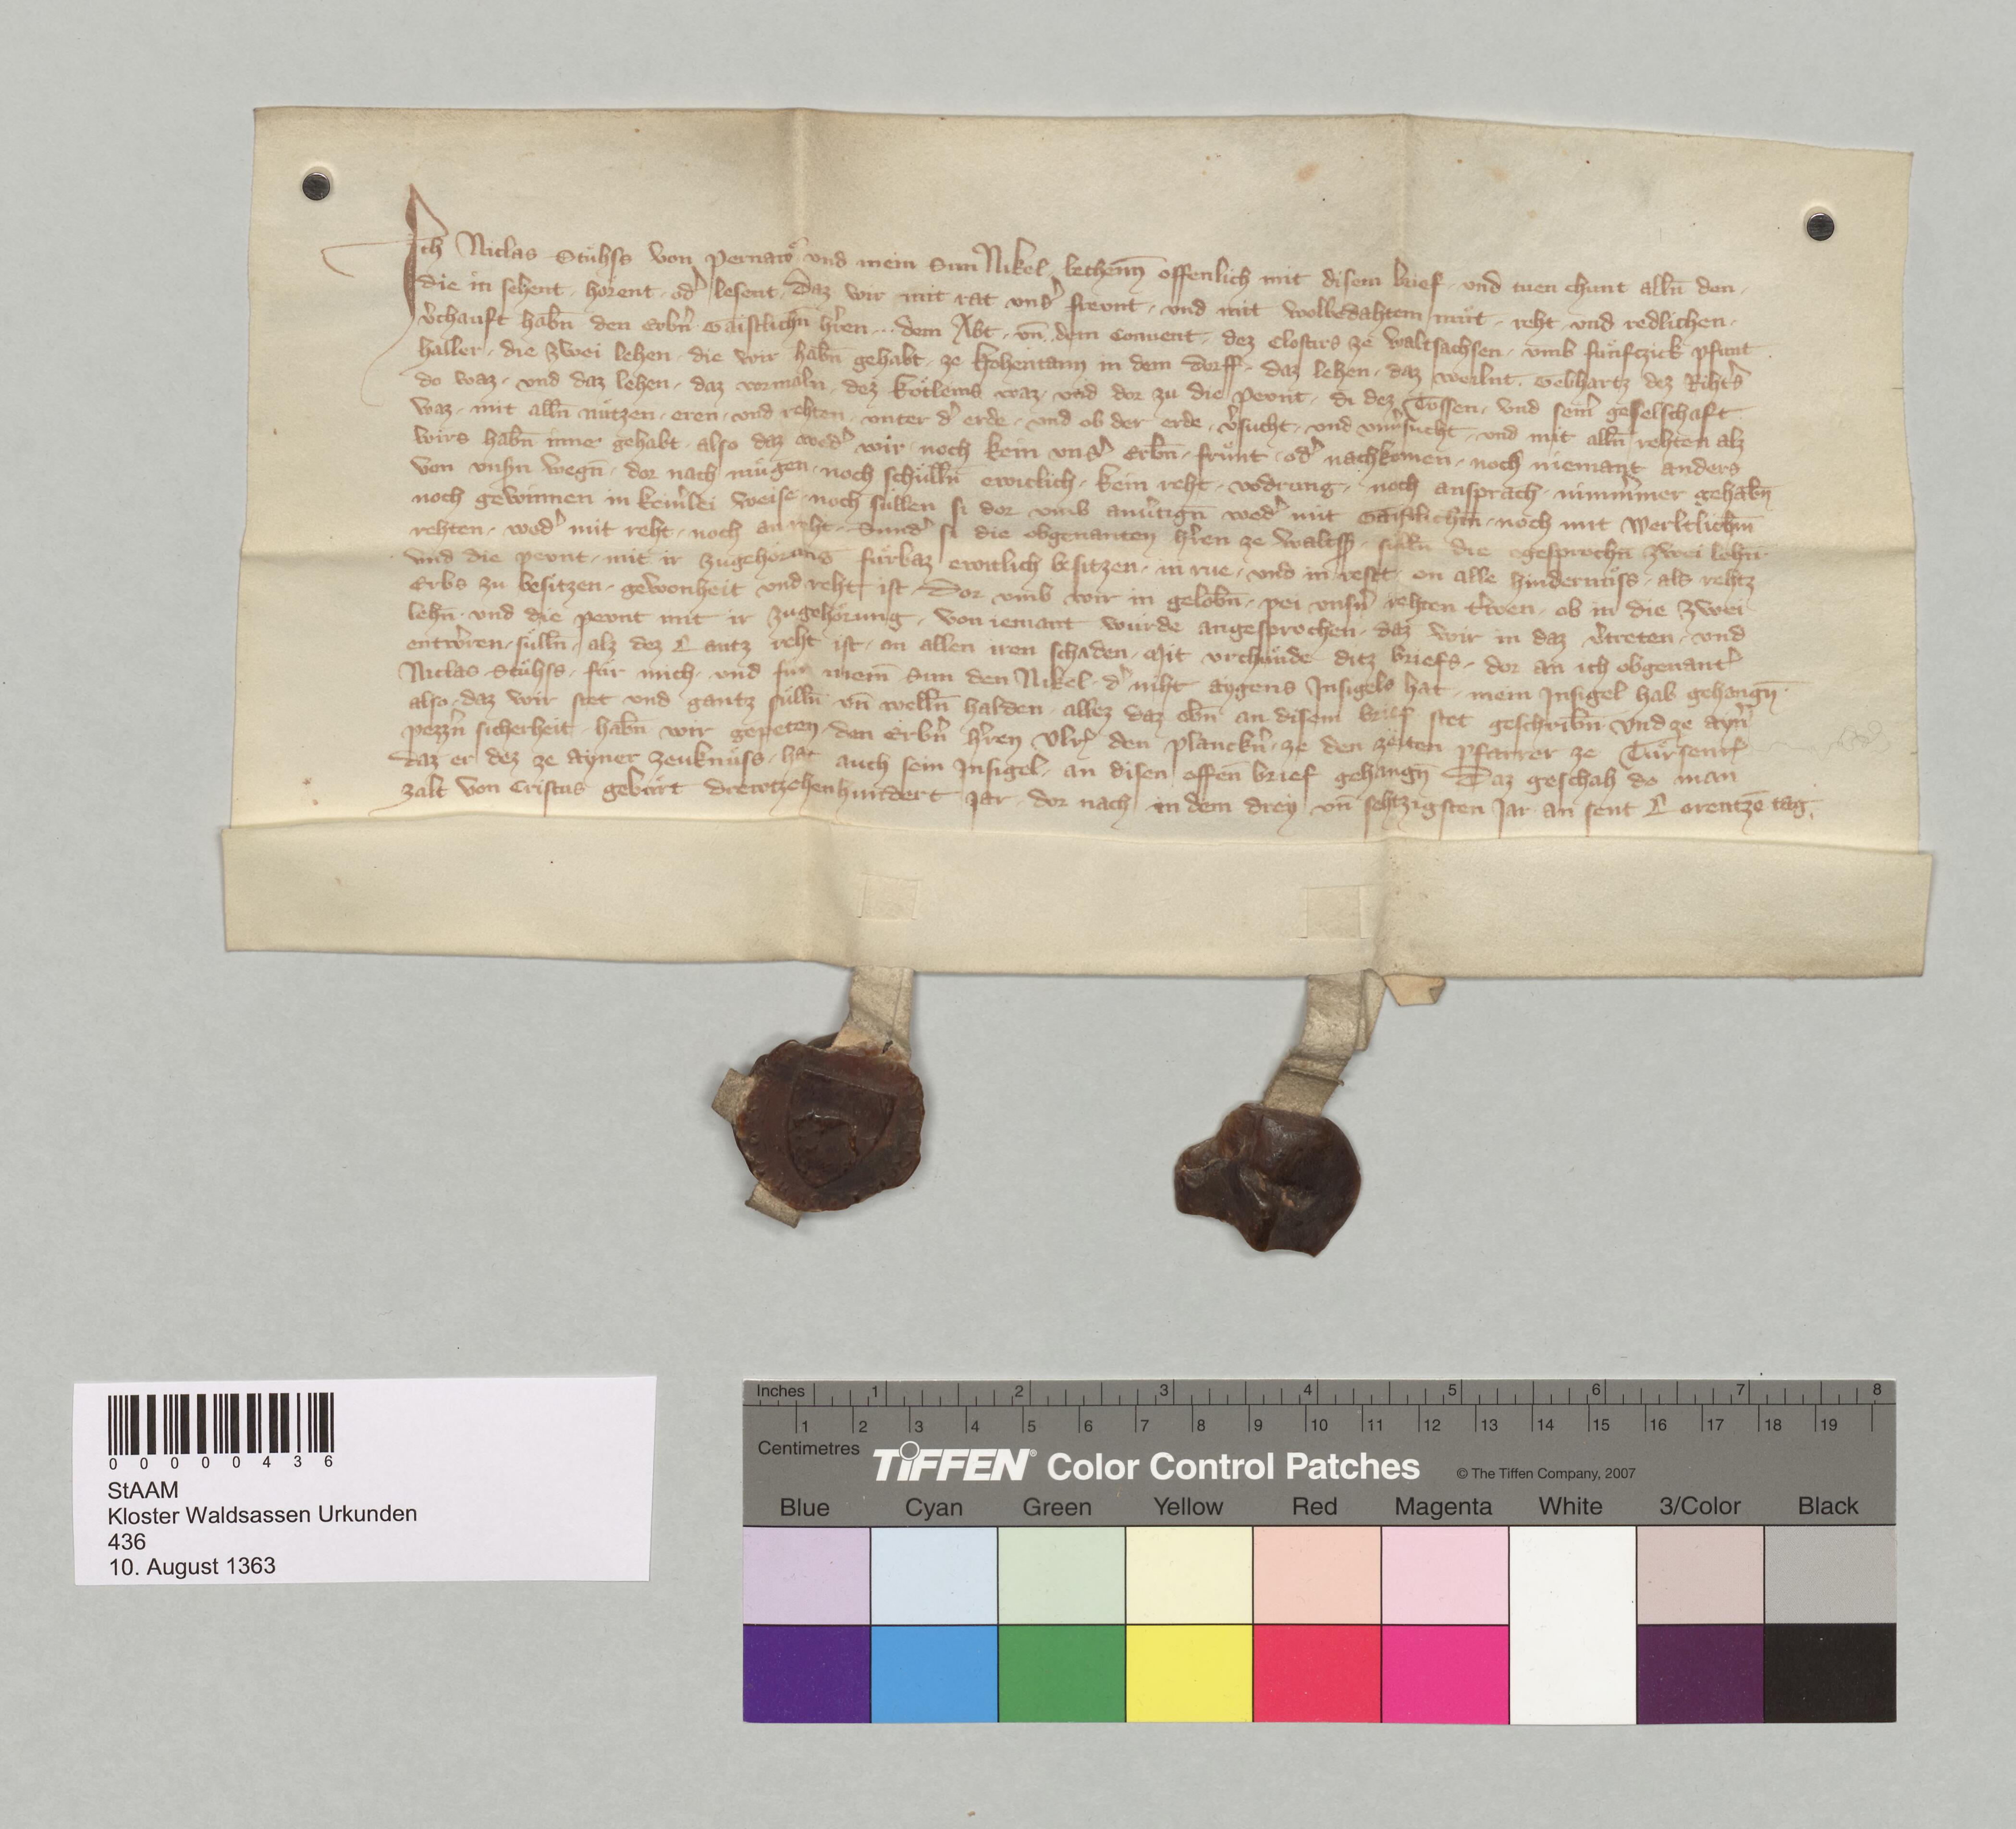 Ich Niclas Stuͤhss von Pernaw vnd mein Sun Nikel bechenn̄ offenlich mit disem brief · vnd tuen chunt alln̄ den ·
die in sehent · horent · od͛ lesent · Daz wir mit rat vns͛ frevnt · vnd mit wolbedahtem muͤt · reht vnd redlichen ·
v͛chauft habn̄ den Erbn͛ Gaistlichn̄ h͛ren ·· dem Abt · vn̄ dem Conuent · dez Closters ze Waltsachsen · vmb fuͤnftzick pfunt
haller · die zwei lehen · die wir habn̄ gehabt · ze Hohentann in dem dorff · daz lehen · daz weilnt · Gebhartz dez Riht͛s
do waz · vnd daz lehen · daz vormaln · dez Koͤtleins waz · vnd dor zu die Pevnt · di dez Tossen · vnd sein͛ geselschaft
waz · mit alln̄ nuͤtzen · eren · vnd rehten · vnter d͛ erde · vnd ob der erde · v͛sucht · vnd vnu͛sucht · vnd mit alln̄ rehten alz
wirs habn̄ inne gehabt · also daz wed͛ wir · noch kein vns͛ Erbn̄ · fruͤnt · od͛ nachkomen · noch niemant anders
von vnsn͛ wegn̄ · dor nach muͤgen · noch schuͤlln̄ ewiclich · kein reht · vodrung · noch ansprach · nimm͛mer gehabn̄
noch gewinnen in kein͛lei weise · noch suͤllen si dor vmb anv͛tign̄ wed͛ mit Gaistlichn̄ · noch mit Werltlichn̄
rehten · wed͛ mit reht · noch an reht · Sund͛ si die obgenanten h͛ren ze Waltss · suͤlln̄ die egesprochn̄ zwei lehn̄
vnd die pevnt · mit ir zugehorung fuͤrbaz ewiclich besitzen · in rue · vnd in rest · on alle hindernuͤss · als rehtz
Erbs zu besitzen · gewonheit vnd reht ist · Dor vmb wir in gelobn̄ · pei vnsn͛ rehten t͛wen · ob in die zwei
lehn̄ · vnd die pevnt mit ir zugehoͤrung · von iemant wurde angesprochen · daz wir in daz v͛treten · vnd
entw͛ren · suͤlln̄ · alz dez Lantz reht ist · on allen iren schaden · Mit vrchuͤnde ditz briefs · dor an ich obgenant͛
Niclas Stuͤhss · fuͤr mich · vnd fuͤr mein Sun den Nikel · d͛ niht aygens Jnsigels hat · mein Jnsigel hab gehangn̄ ·
also · daz wir stet vnd gantz suͤlln̄ vn̄ welln̄ halden · allez daz obn̄ an disem brief stet geschribn̄ · Vnd ze ayn͛
pezz͛n sicherheit · habn̄ wir gepeten · den Erbn͛ h͛ren Vlr͛ den planckn͛ · ze den zeiten pfarrer ze Tuͤrsenr͛
daz er dez ze ayner zeuknuͤss · hat auch sein Jnsigel · an disen offen̄ brief gehangn̄ Daz geschah do man
zalt von Cristus geburt drewtzehenhundert Jar · dor nach in dem drey vn̄ sehtzigsten Jar an sent Lorentzē tag.
000000436
StAAM
Kloster Waldsassen Urkunden
436
10. August 1363
Inches 1 2 3 4 5 6 7 8
1 2 3 4 5 6 7 8 9 10 11 12 13 14 15 16 17 18 19
Centimetres
TIFFEN® Color Control Patches © The Tiffen Company, 2007
Blue Cyan Green Yellow Red Magenta White 3/Color Black